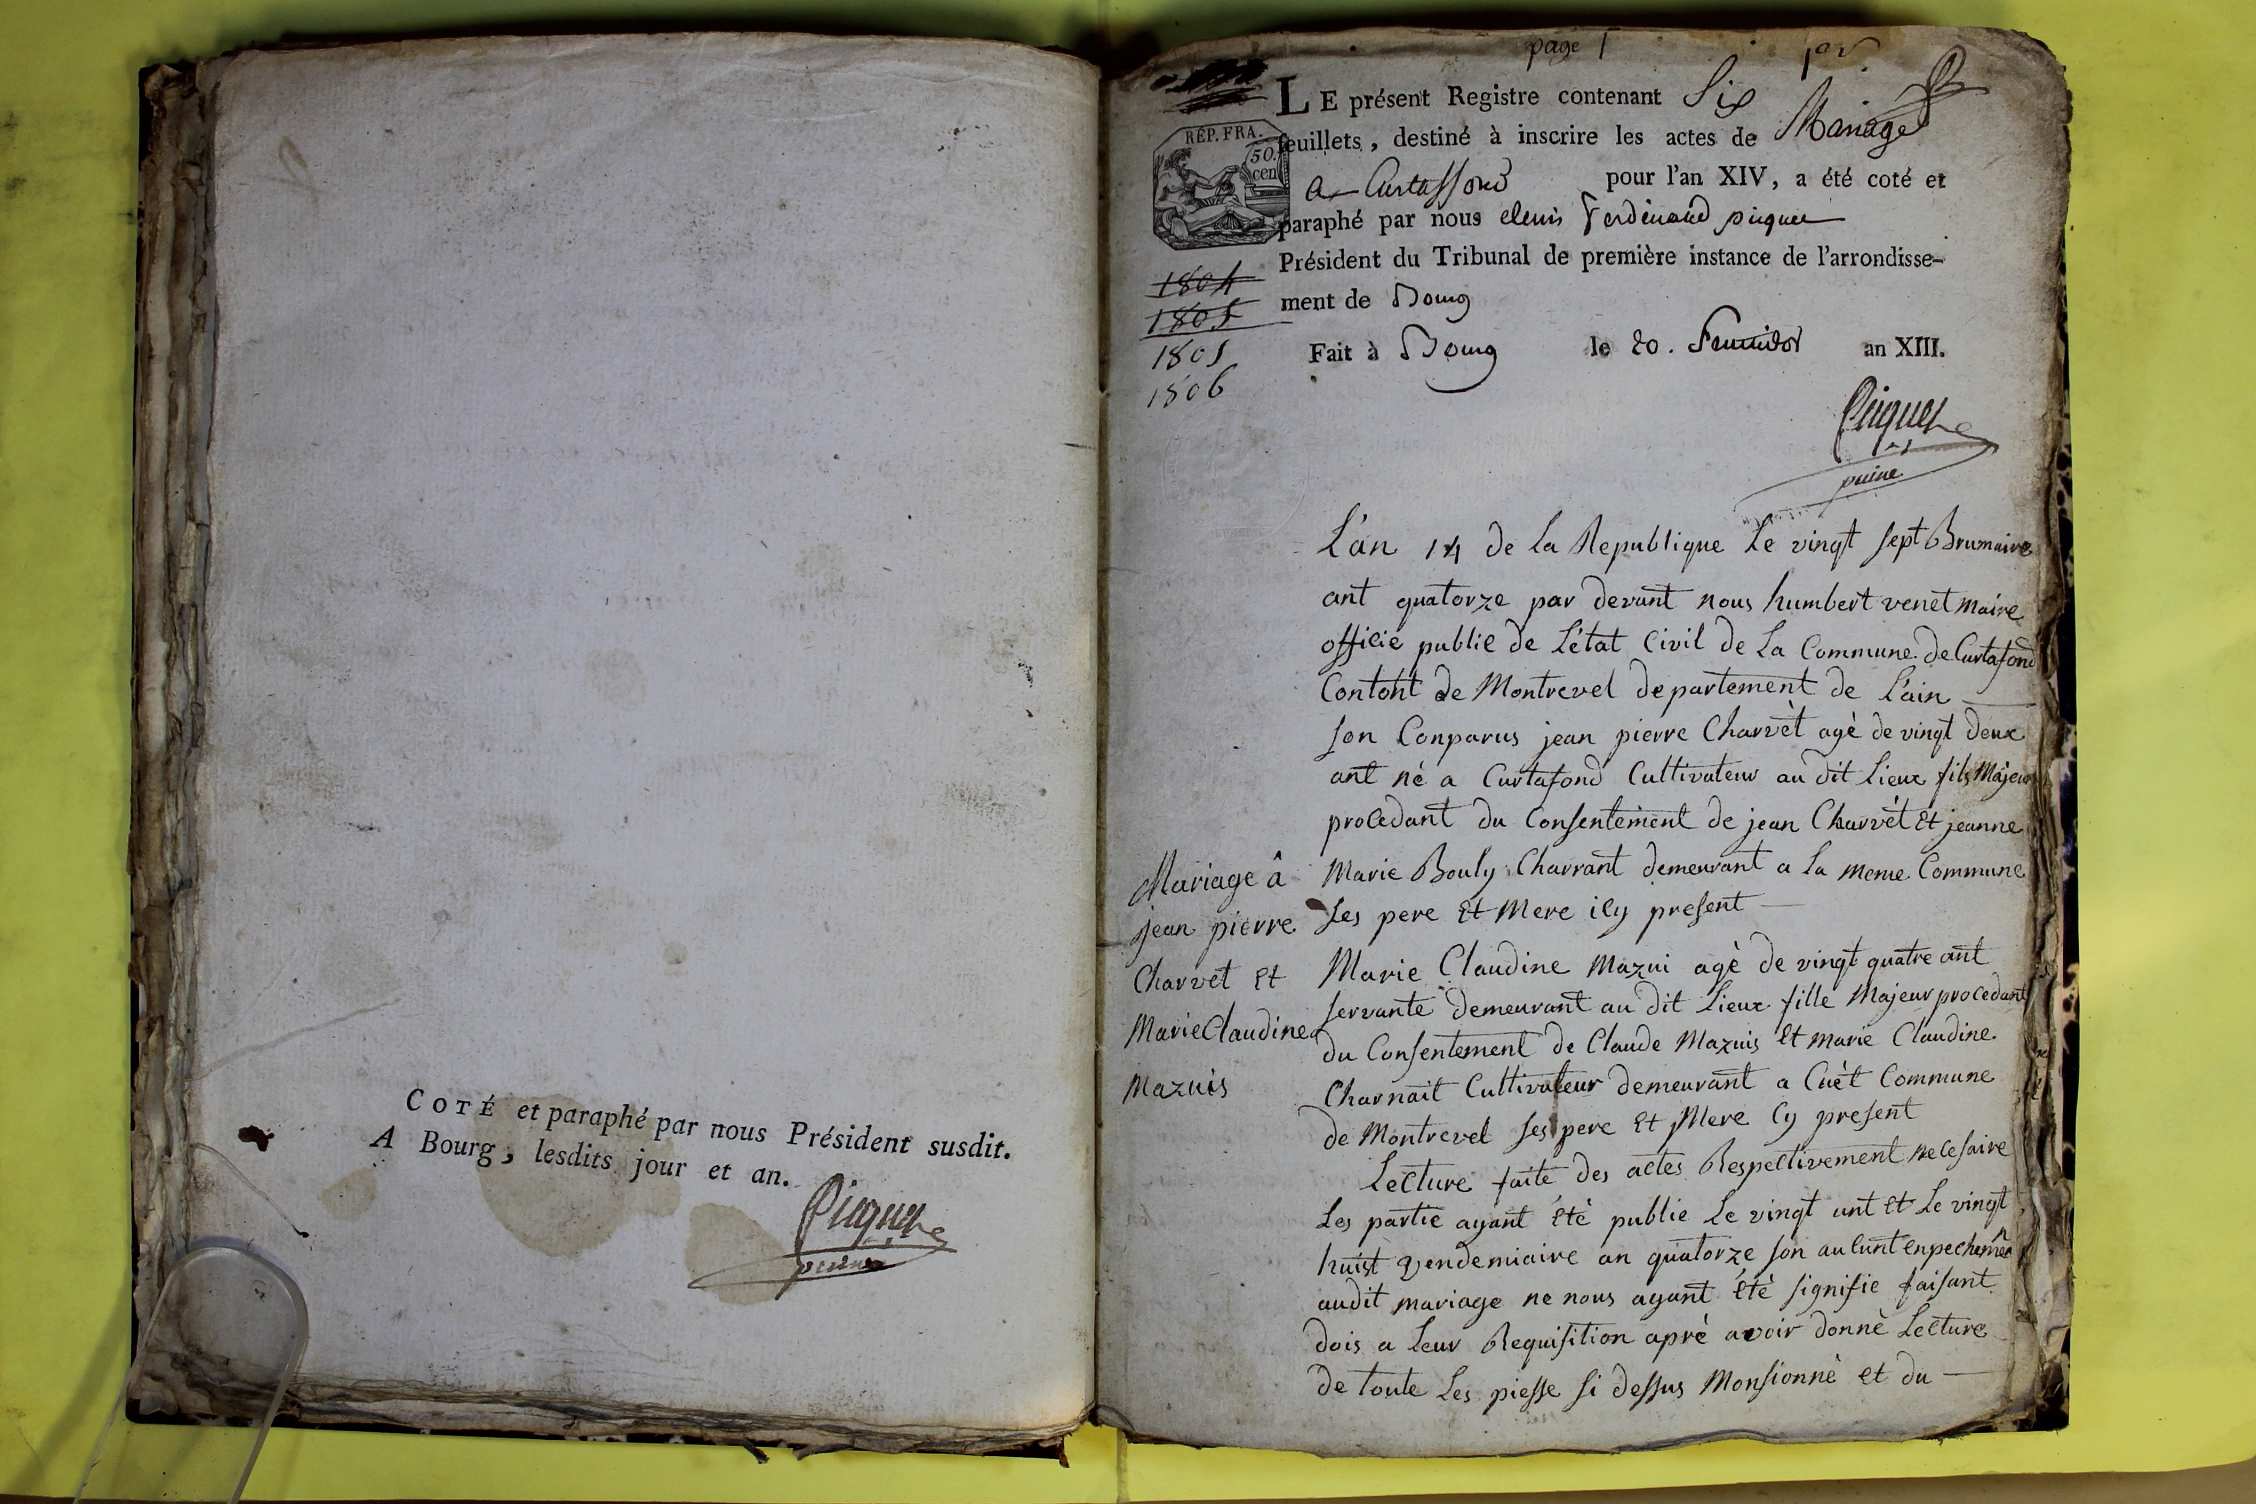 COTÉ et paraphé par nous Président susdit.
A Bourg, lesdits jour et an.
Picquet
puine
page 1
1er
LE présent Registre contenant Six
feuillets, destiné à inscrire les actes de Mariage
RÉP. FRA.
50.
cen
a Curtaffond pour l'an XIV, a été coté et
paraphé par nous Ferdinand picquet
Président du Tribunal de première instance de l'arrondisse-
ment de Bourg
1804
1805
1805
1806
Fait à Bourg le 20. Fructidor an XIII.
Picquet
puine
L'an 14 de La Republique Le vingt sept Brumaire
ant quatorze par devant nous humbert venet maire
officie public de L'état Civil de La Commune de Curtafond
Contont de Montrevel departement de L'ain
son Conparus jean pierre Charvèt agè de vingt deux
ant né a Curtafond Cultivateur au dit Lieux fils Majeur
procedant du Consentement de jean Charvèt Et jeanne
Marie Bouly Charrant demeurant a La meme Commune
Ses pere Et Mere icy present
Mariage â
jean pierre
Charvet Et
Marie Claudine
Mazuis
Marie Claudine Mazui agè de vingt quatre ant
servante demeurant au dit Lieux fille Majeur procedant
du Consentement de Claude Mazuis Et marie Claudine
Charnait Cultivateur demeurant a Cuèt Commune
de Montrevel ses pere Et Mere Cy present
Lecture faite des actes Respectivement necesaire
Les partie ayant étè publie Le vingt unt Et Le vingt
huist vendemiaire an quatorze son aucunt enpechemen
audit mariage ne nous ayant Étè signifie faisant
dois a Leur Requisition aprè avoir donnè Lecture
de toute Les piesse si dessus Monsionnè et du